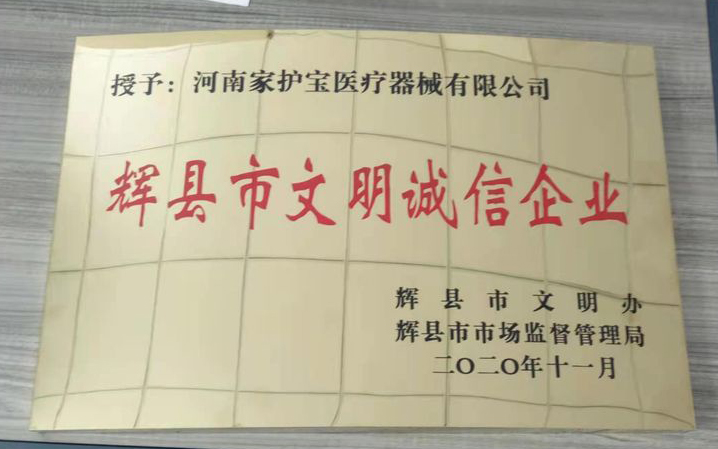 授予：河南家护宝医疗器械有限公司
辉县市文明诚信企业
辉县市文明办
辉县市市场监督管理局
二〇二〇年十一月